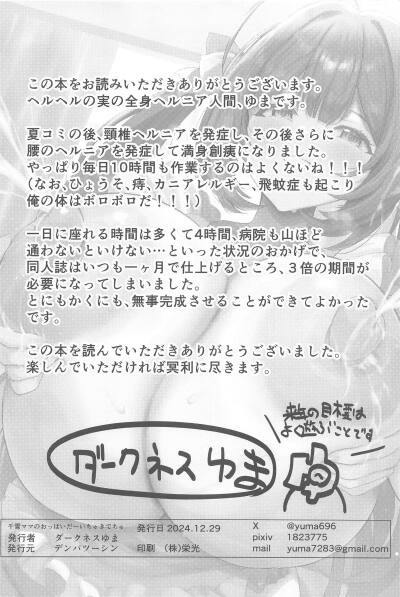 この本をお読みいただきありがとうございます。
ヘルヘルの実の全身ヘルニア人間、ゆまです。
夏コミの後、頸椎ヘルニアを発症し、その後さらに
腰のヘルニアを発症して満身創痍になりました。
やっぱり毎日10時間も作業するのはよくないね！！！
(なお、ひょうそ、痔、カニアレルギー、飛蚊症も起こり
俺の体はボロボロだ！！！)
一日に座れる時間は多くて4時間、病院も山ほど
通わないといけない…といった状況のおかげで、
同人誌はいつも一ヶ月で仕上げるところ、３倍の期間が
必要になってしまいました。
とにもかくにも、無事完成させることができてよかった
です。
この本を読んでいただきありがとうございました。
楽しんでいただければ冥利に尽きます。
来年の目標は
よく遊ぶことです
ダークネスゆま
千雪ママのおっぱいだーいちゅきでちゅ
発行者 ダークネスゆま
発行元 デンパツーシン
発行日 2024.12.29
印刷 (株)栄光
X @yuma696
pixiv 1823775
mail yuma7283@gmail.com